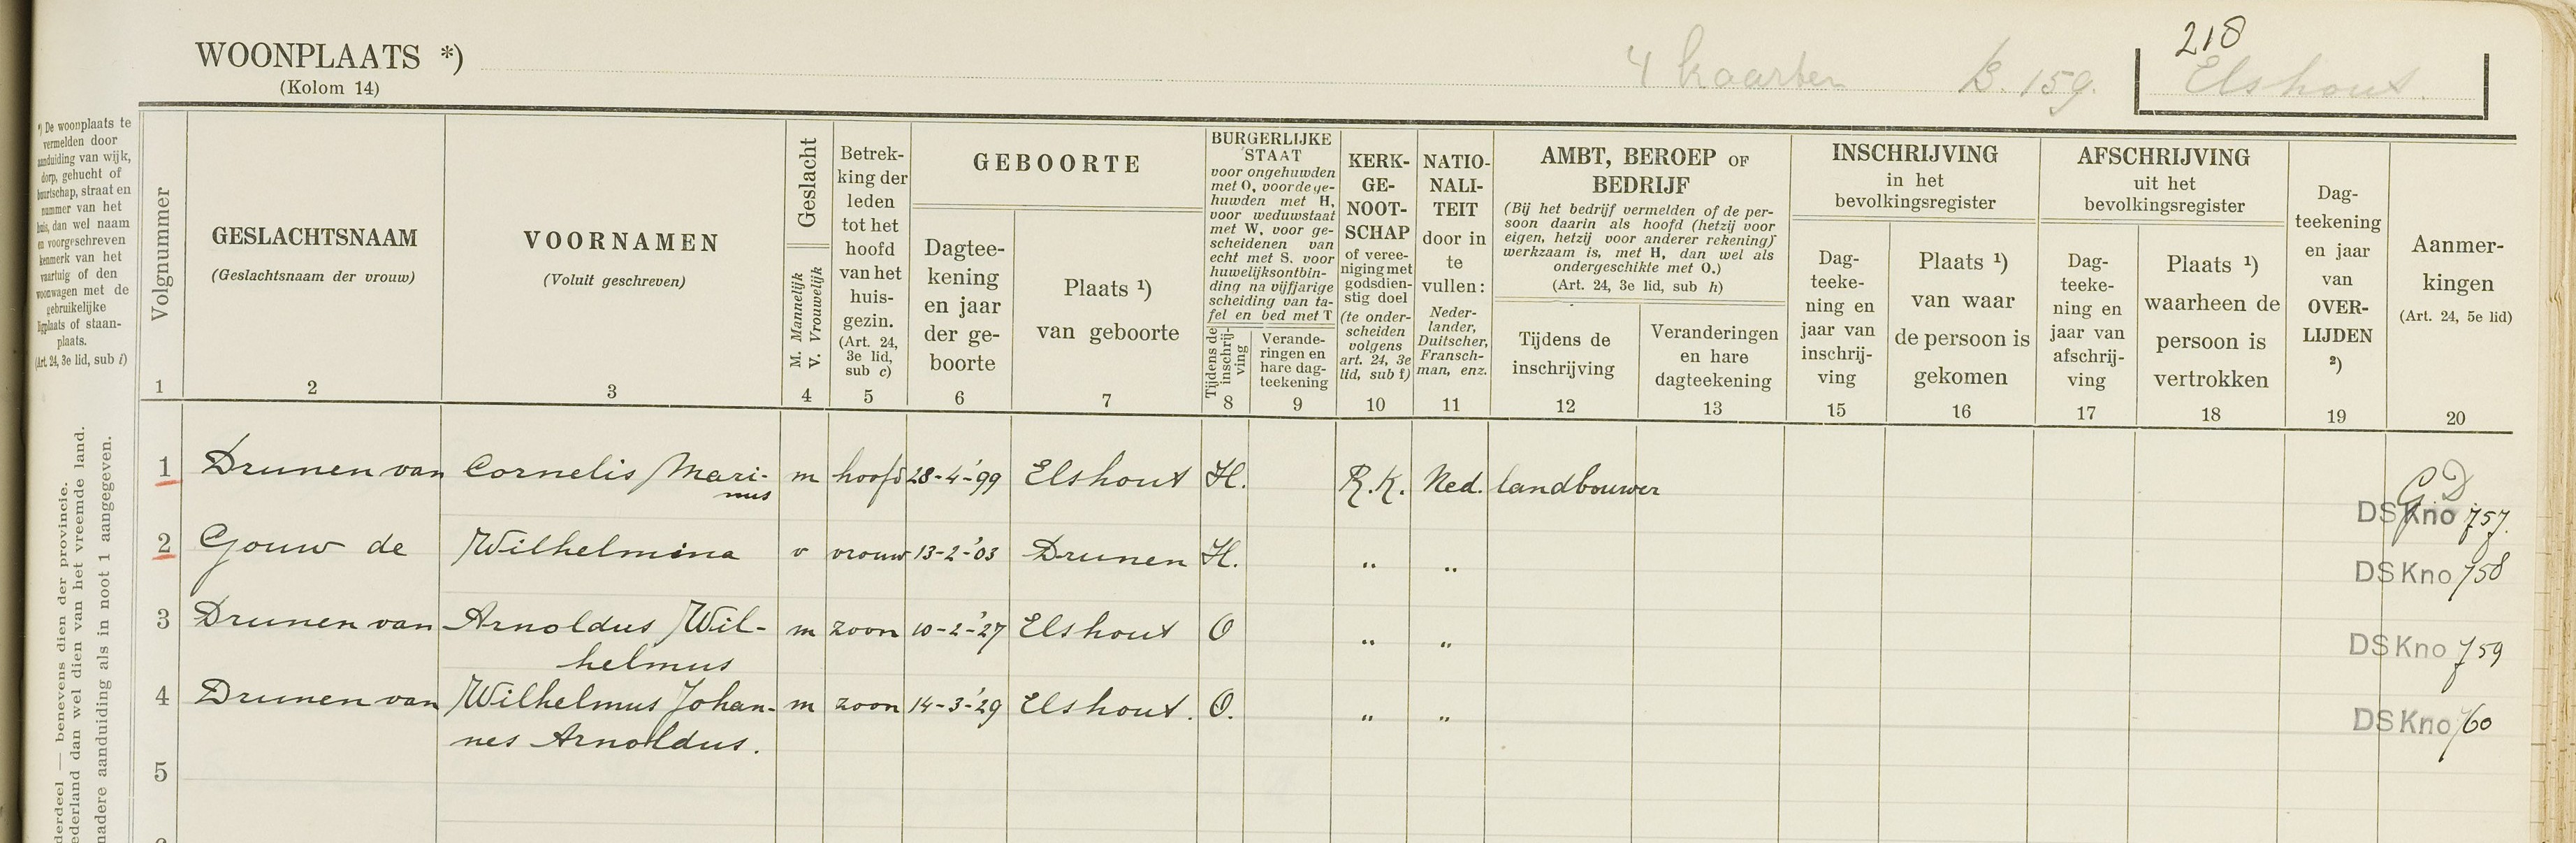 218
WOONPLAATS *)
(Kolom 14)
4 kaarten B. 159.
Elshout.
*) De woonplaats te
vermelden door
aanduiding van wijk,
dorp, gehucht of
buurtschap, straat en
nummer van het
huis, dan wel naam
en voorgeschreven
kenmerk van het
vaartuig of den
woonwagen met de
gebruikelijke
ligplaats of staan-
plaats.
(Art. 24, 3e lid, sub i)
derdeel — benevens dien der provincie.
ederland dan wel dien van het vreemde land.
nadere aanduiding als in noot 1 aangegeven.
Volgnummer
1
GESLACHTSNAAM
(Geslachtsnaam der vrouw)
2
VOORNAMEN
(Voluit geschreven)
3
Geslacht
M. Mannelijk
V. Vrouwelijk
4
Betrek-
king der
leden
tot het
hoofd
van het
huis-
gezin.
(Art. 24,
3e lid,
sub c)
5
GEBOORTE
Dagtee-
kening
en jaar
der ge-
boorte
6
Plaats ¹)
van geboorte
7
BURGERLIJKE
STAAT
voor ongehuwden
met O, voor de ge-
huwden met H,
voor weduwstaat
met W, voor ge-
scheidenen van
echt met S. voor
huwelijksontbin-
ding na vijfjarige
scheiding van ta-
fel en bed met T
Tijdens de
inschrij-
ving
8
Verande-
ringen en
hare dag-
teekening
9
KERK-
GE-
NOOT-
SCHAP
of veree-
niging met
godsdien-
stig doel
(te onder-
scheiden
volgens
art. 24, 3e
lid, sub f)
10
NATIO-
NALI-
TEIT
door in
te
vullen:
Neder-
lander,
Duitscher,
Fransch-
man, enz.
11
AMBT, BEROEP OF
BEDRIJF
(Bij het bedrijf vermelden of de per-
soon daarin als hoofd (hetzij voor
eigen, hetzij voor anderer rekening)
werkzaam is, met H, dan wel als
ondergeschikte met O.)
(Art. 24, 3e lid, sub h)
Tijdens de
inschrijving
12
Veranderingen
en hare
dagteekening
13
INSCHRIJVING
in het
bevolkingsregister
Dag-
teeke-
ning en
jaar van
inschrij-
ving
15
Plaats ¹)
van waar
de persoon is
gekomen
16
AFSCHRIJVING
uit het
bevolkingsregister
Dag-
teeke-
ning en
jaar van
afschrij-
ving
17
Plaats ¹)
waarheen de
persoon is
vertrokken
18
Dag-
teekening
en jaar
van
OVER-
LIJDEN
²)
19
Aanmer-
kingen
(Art. 24, 5e lid)
20
1 Drunen van Cornelis Mari- m hoofd 28-4-'99 Elshout H. R.K. Ned. landbouwer G.D
nus
DSKno 757.
2 Gouw de Wilhelmina v vrouw 13-2-'03 Drunen H. " " DSKno 758
3 Drunen van Arnoldus Wil- m zoon 10-2-'27 Elshout O " " DSKno 759
helmus
4 Drunen van Wilhelmus Johan- m zoon 14-3-'29 Elshout. O. " " DSKno 760
nes Arnoldus.
5